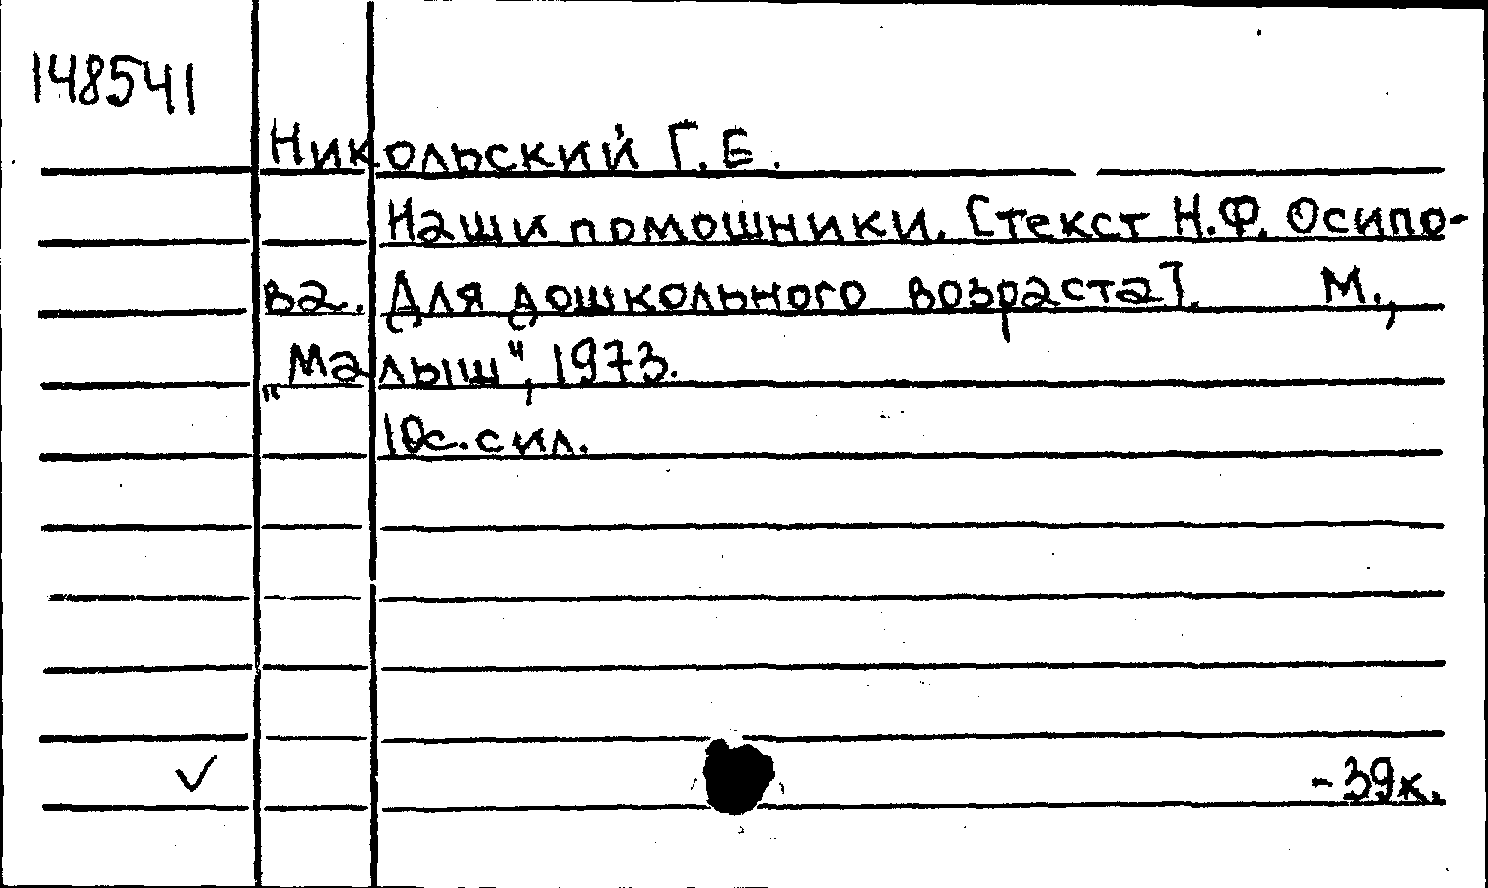 148541
Никольский Г.Е.
Наши помошники. [текст Н.Ф. Осипо-
ва. Для дошкольного возраста]. М.,
„Малыш", 1973.
10с. с ил.
-39к.